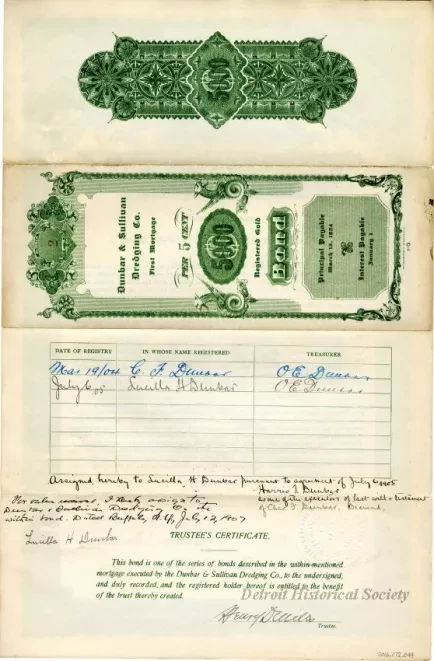 5000
2
Dunbar & Sullivan
Dredging Co.
First Mortgage
5 PER CENT
5000
Registered Gold
Bond
Principal Payable
March 15, 1924
Interest Payable
January 1
DATE OF REGISTRY IN WHOSE NAME REGISTERED TREASURER
Mar 19/04 C. F. Dunbar O E Dunbar
July 6 05 Lucilla H Dunbar O E Dunbar
Assigned hereby to Lucilla H Dunbar pursuant to agreement of July 6 1905
Harris T. Dunbar
some of the executors of last will & testament
of Chas F. Dunbar, Deceased.
For value received, I hereby assign to
Dunbar & Sullivan Dredging Co. the
within bond. Dated Buffalo N.Y., July 12, 1907
Lucilla H Dunbar
TRUSTEE'S CERTIFICATE.
This bond is one of the series of bonds described in the within-mentioned
mortgage executed by the Dunbar & Sullivan Dredging Co., to the undersigned,
and duly recorded, and the registered holder hereof is entitled to the benefit
of the trust thereby created.
Detroit Historical Society
Henry
Trustee.